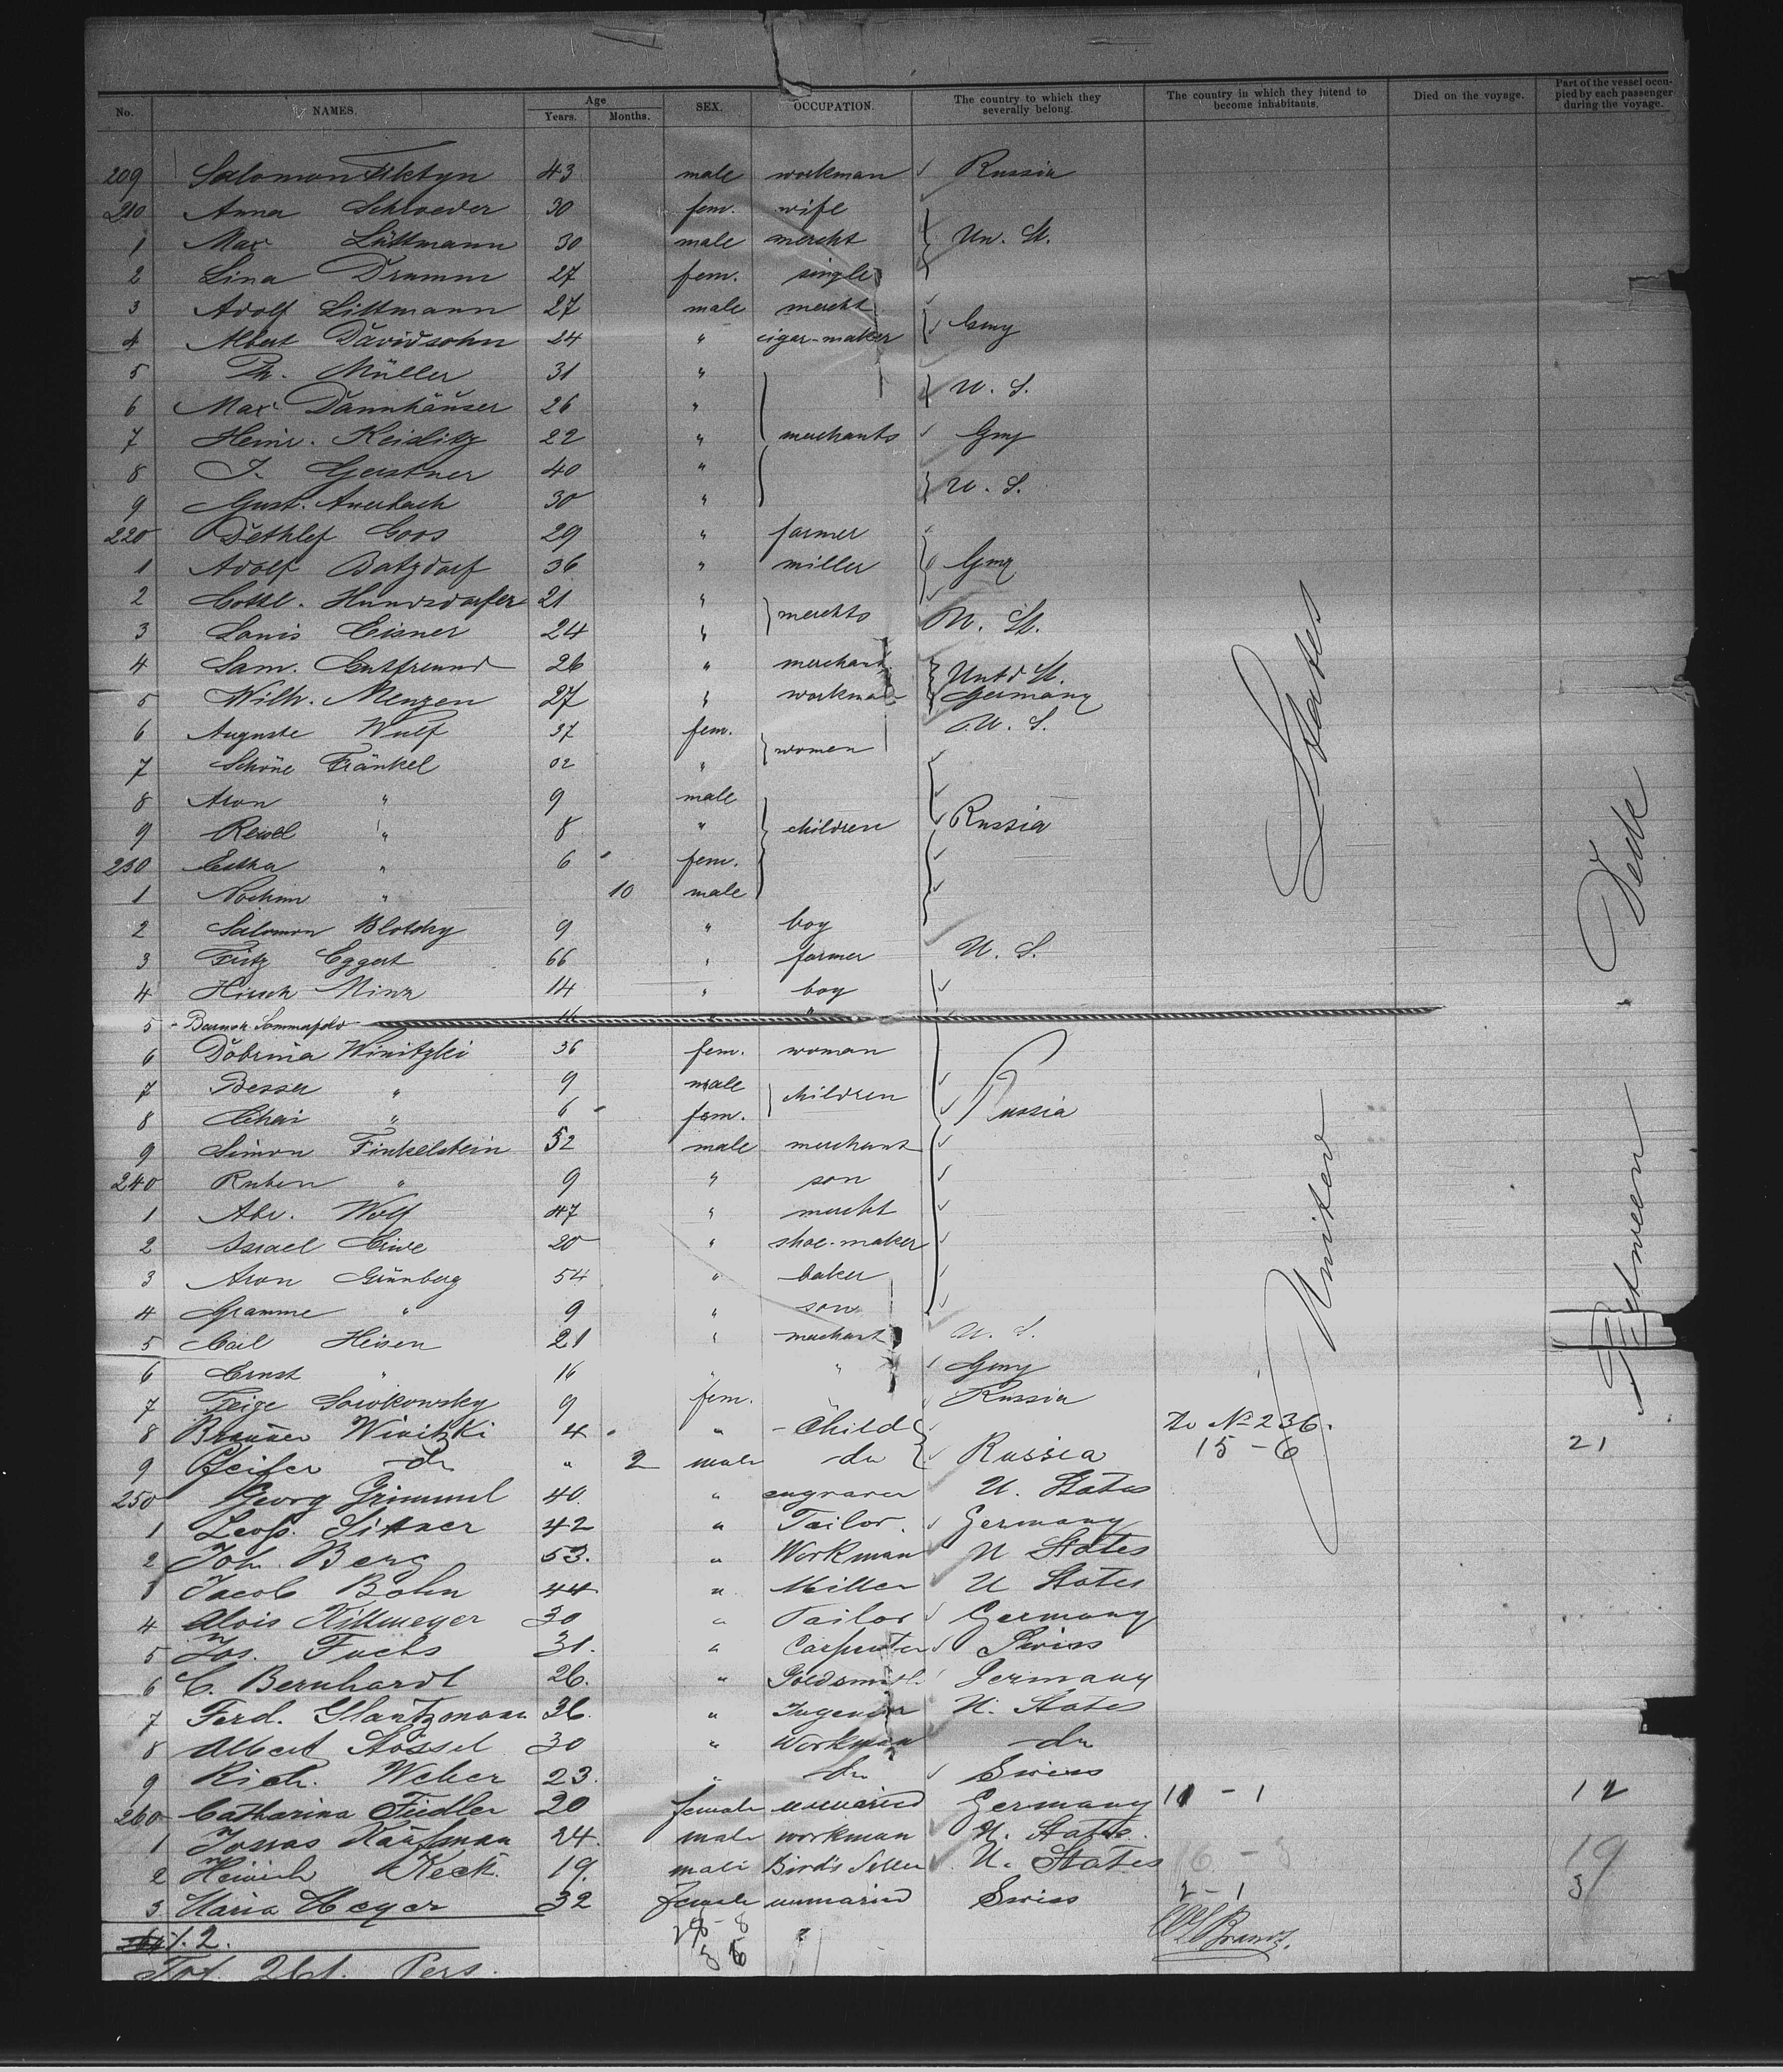 No. NAMES. Age Years. Months. SEX. OCCUPATION. The country to which they severally belong. The country in which they intend to become inhabitants. Died on the voyage. Part of the vessel occupied by each passenger during the voyage.
209 Salomon 43 male workman Russia
210 Anna Schroeder 30 fem. wife
1 Max Lüttmann 30 male mercht Un. St.
2 Lina Dramm 27 fem. single
3 Adolf Littmann 27 male mercht
4 Albert Davidsohn 24 " cigar-maker Gmy
5 Ph. Müller 31 "
6 Max Dannhäuser 26 " U. S.
7 Heinr. Keiditz 22 " merchants Gmy
8 J. Gerstner 40 "
9 Gust. Auerbach 30 " U. S.
220 Dethlef Coos 29 " farmer
1 Adolf Batzdorf 36 " miller Gmy
2 Gottl. Hundsdorfer 21 " merchts
3 Louis Eisner 24 " U. St.
4 Sam. Gutfreund 26 " merchant Untd St.
5 Wilh. Menzen 27 " workman Germany
6 Auguste Wulf 37 fem. U. S.
7 Schöne Fränkel " women
8 Aron " 9 male
9 Reisel " 8 " children Russia
230 Esther " 6 fem.
1 Nochim " 10 male
2 Salomon Blotzky 9 " boy
3 Fritz Eggert 66 " farmer U. S.
4 Hirsch Minz 14 " boy
5
6 Dobrina Winitzki 36 fem. woman
7 Besser " 9 male children
8 Chai " 6 fem. Russia
9 Simon Finkelstein 52 male merchant
240 Ruben " 9 " son
1 Abr. Wolf 47 " mercht
2 Israel 20 " shoe-maker
3 Aron Grünberg 54 " baker
4 Gramme " 9 " son
5 Carl Heisen 21 " merchant U. S.
6 Ernst " 16 " " Gmy
7 Feige Sowkowsky 9 fem. Russia
8 Winitzki 4 " - Child To No 236.
9 Pfeifer do " 2 male do Russia 15 - 6 21
250 Georg Grimmel 40. " engraver U. States
1 Leop. Sittner 42 " Tailor. Germany
2 Joh. Berg 53. " Workman U States
3 Jacob Bohn 44 " Miller U States
4 Alois Killmeyer 30 " Tailor Germany
5 Jos. Fuchs 31. " Carpenter Swiss
6 C. Bernhardt 26. " Goldsmith Germany
7 Ferd. Glantzmann 36. " U. States
8 Albert Stössel 30 " Workman do
9 Rich. Weber 23. " do Swiss
260 Catharina Fiedler 20 female unmaried Germany 11 - 1 12
1 Jonas Kaufman 24. male workman U. States.
2 Heinrich Keck 19. male Bird's Seller U. States 19
3 Maria Heyer 32 female unmaried Swiss 2 - 1 3
United States
Between Deck
1.2.
Tot. 261. Pers.